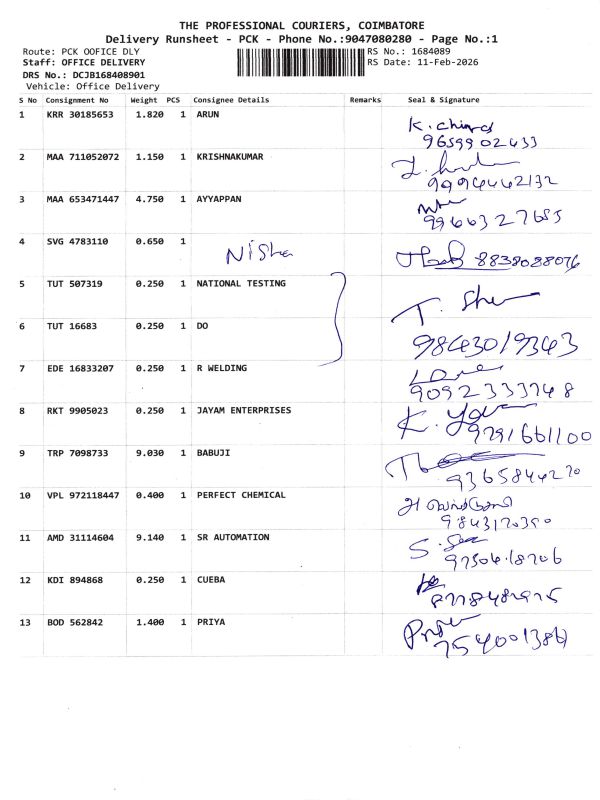 THE PROFESSIONAL COURIERS, COIMBATORE
Delivery Runsheet - PCK - Phone No.:9047080280 - Page No.:1
Route: PCK OOFICE DLY
RS No.: 1684089
Staff: OFFICE DELIVERY
RS Date: 11-Feb-2026
DRS No.: DCJB168408901
Vehicle: Office Delivery
S No Consignment No Weight PCS Consignee Details Remarks Seal & Signature
1 KRR 30185653 1.820 1 ARUN
9659902433
2 MAA 711052072 1.150 1 KRISHNAKUMAR
9994442132
3 MAA 653471447 4.750 1 AYYAPPAN
9966327685
4 SVG 4783110 0.650 1
Nisha
8838028076
5 TUT 507319 0.250 1 NATIONAL TESTING
6 TUT 16683 0.250 1 DO
9843019343
7 EDE 16833207 0.250 1 R WELDING
9092333748
8 RKT 9905023 0.250 1 JAYAM ENTERPRISES
9791661100
9 TRP 7098733 9.030 1 BABUJI
9365844270
10 VPL 972118447 0.400 1 PERFECT CHEMICAL
9843170390
11 AMD 31114604 9.140 1 SR AUTOMATION
12 KDI 894868 0.250 1 CUEBA
13 BOD 562842 1.400 1 PRIYA